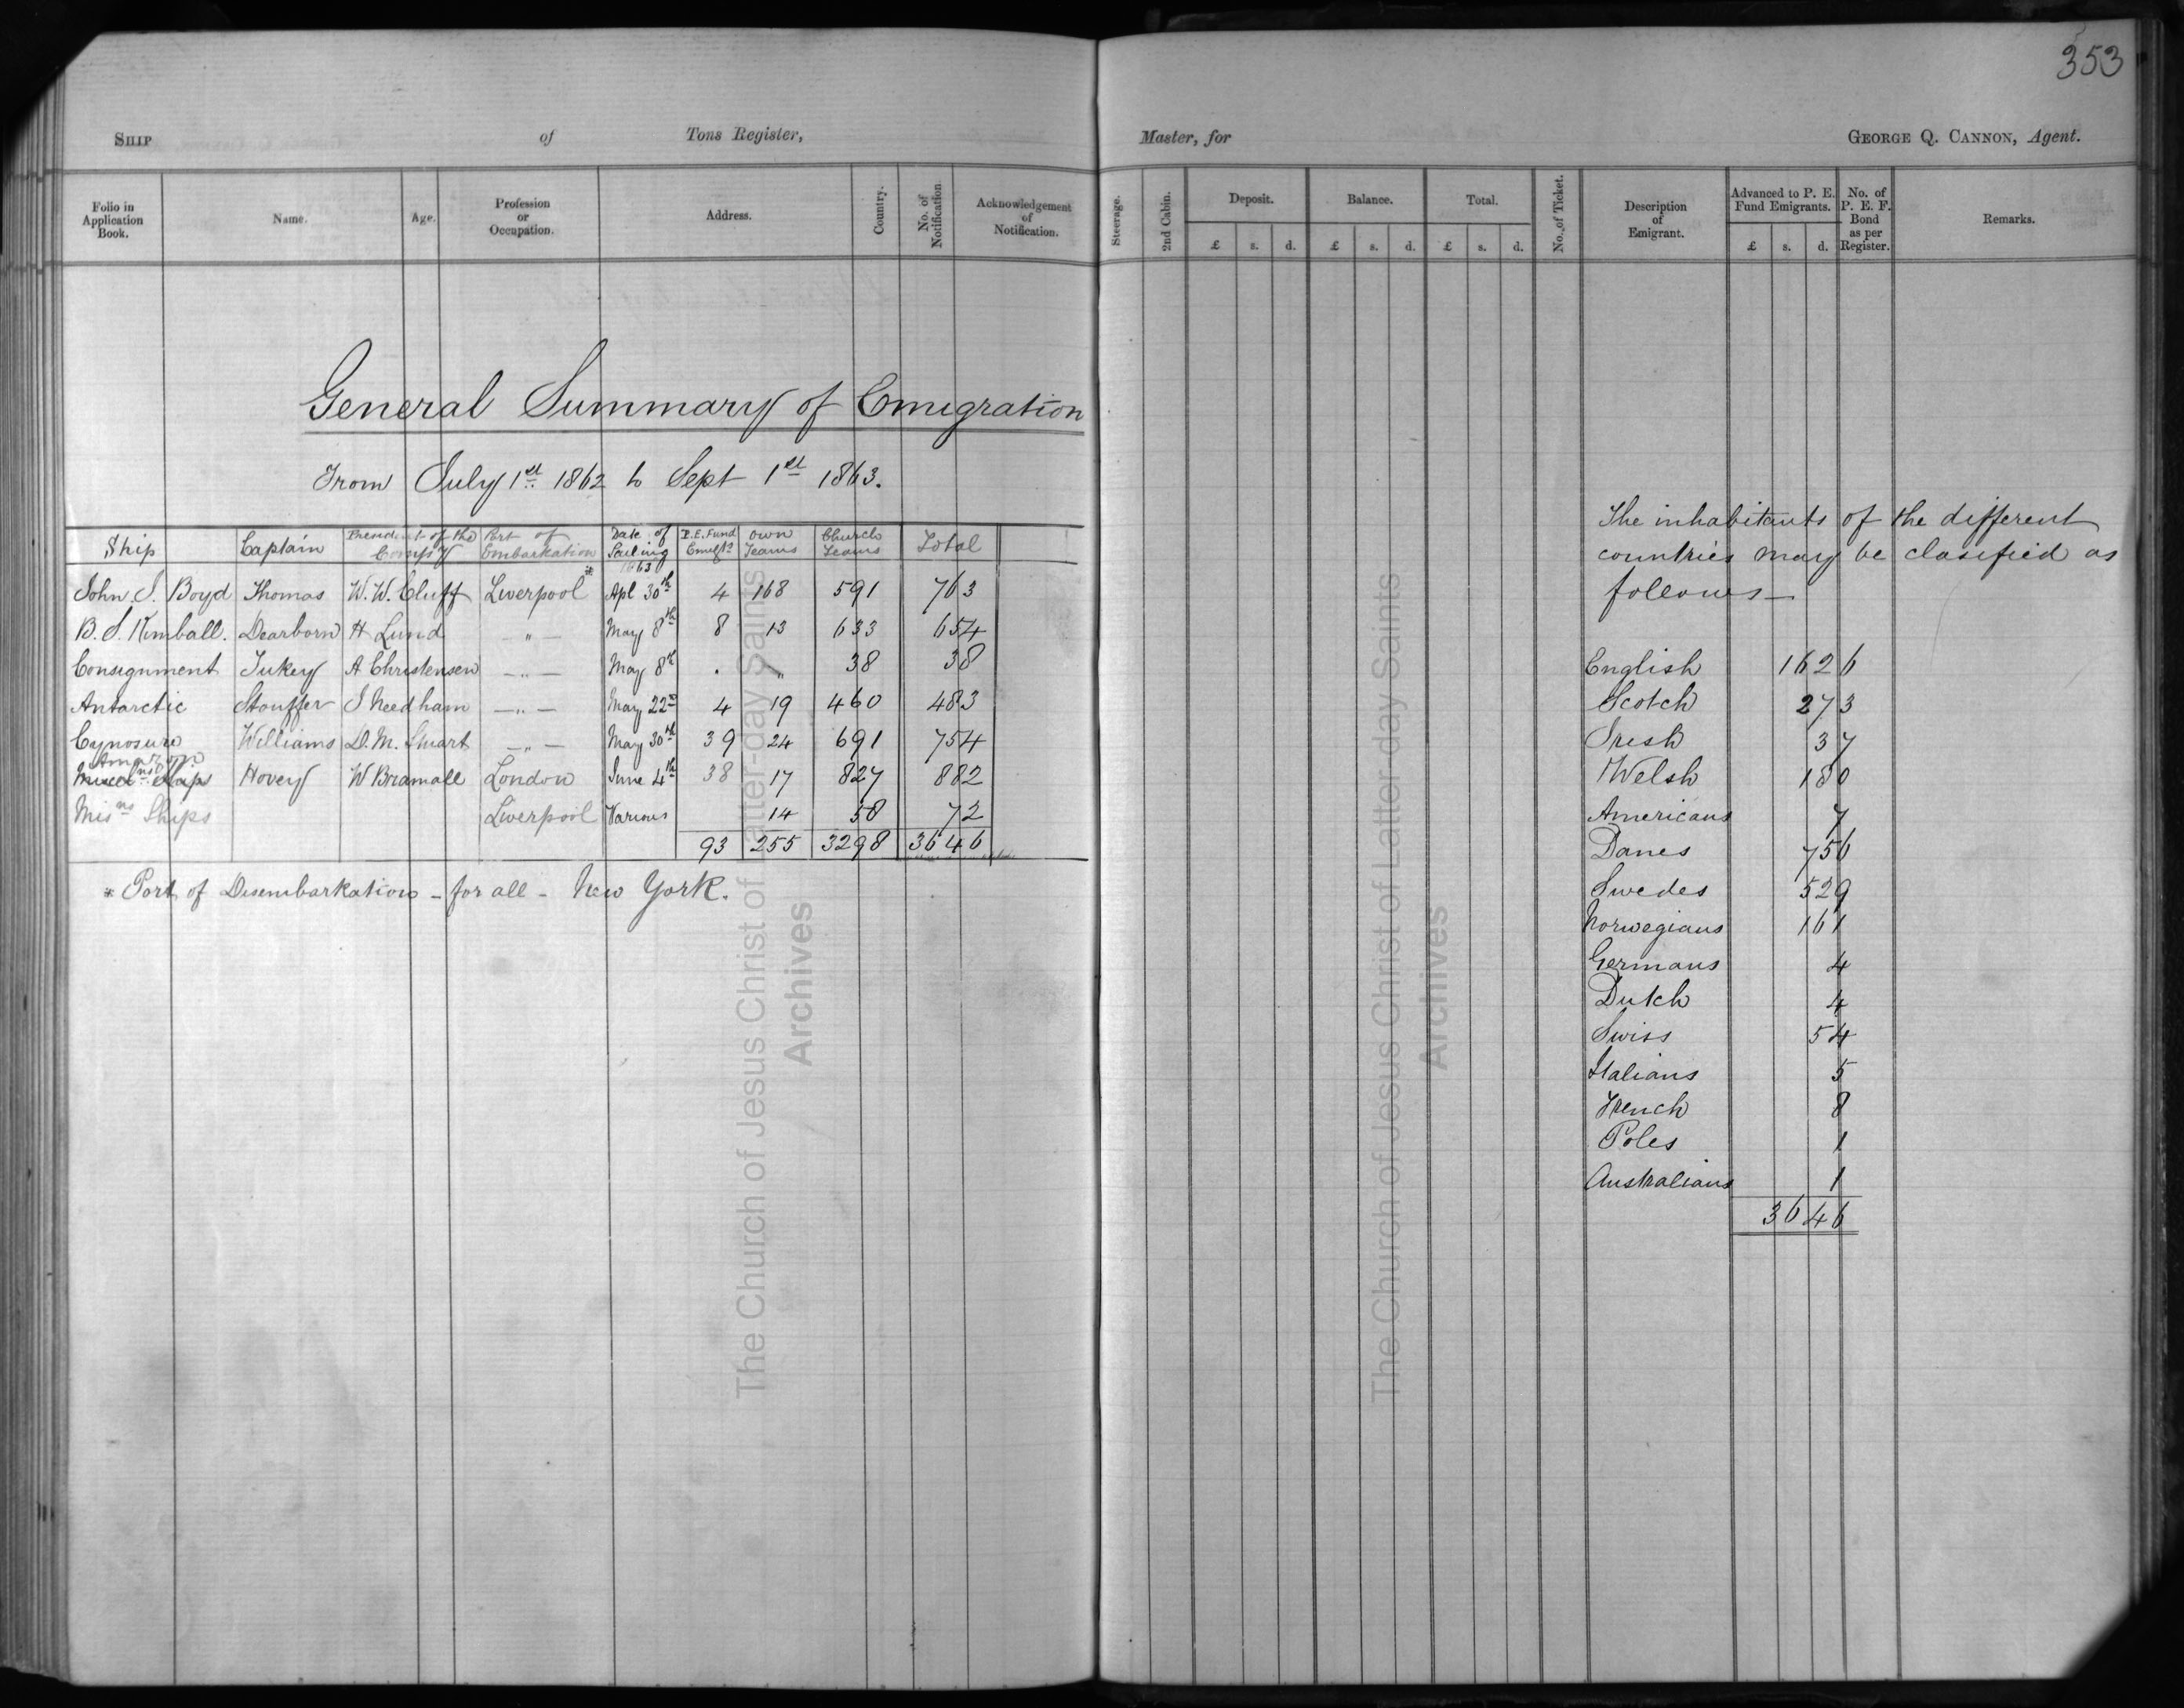 353
SHIP of Tons Register,
Master, for GEORGE Q. CANNON, Agent.
Folio in Application Book. Name. Age. Profession or Occupation. Address. Country. No. of Notification. Acknowledgement of Notification.
Steerage. 2nd Cabin. Deposit. Balance. Total. No. of Ticket. Description of Emigrant. Advanced to P. E. Fund Emigrants. No. of P. E. F. Bond as per Register. Remarks.
£ s. d. £ s. d. £ s. d. £ s. d.
General Summary of Emigration
From July 1st 1862 to Sept 1st 1863.
Ship Captain President of the Comp'y Port of Embarkation Date of Sailing P.E. Fund Emigts own Teams Church Teams Total
1863
John J. Boyd Thomas W. W. Cluff Liverpool* Apl 30th 4 168 591 763
B. S. Kimball. Dearborn H Lund — " — May 8th 8 13 633 654
Consignment Tukey A Christensen — " — May 8th . " 38 38
Antarctic Stouffer J Needham — " — May 22nd 4 19 460 483
Cynosure Williams D. M. Stuart — " — May 30th 39 24 691 754
Amazon
Hovey W Bramall London June 4th 38 17 827 882
Misns Ships Liverpool Various 14 58 72
93 255 3298 3646
* Port of Disembarkation - for all - New York.
The inhabitants of the different
countries may be clasified as
follows —
English 1626
Scotch 273
Irish 37
Welsh 180
Americans 7
Danes 756
Swedes 529
Norwegians 161
Germans 4
Dutch 4
Swiss 54
Italians 5
French 8
Poles 1
Australians 1
3646
The Church of Jesus Christ of Latter-day Saints
Archives
The Church of Jesus Christ of Latter-day Saints
Archives